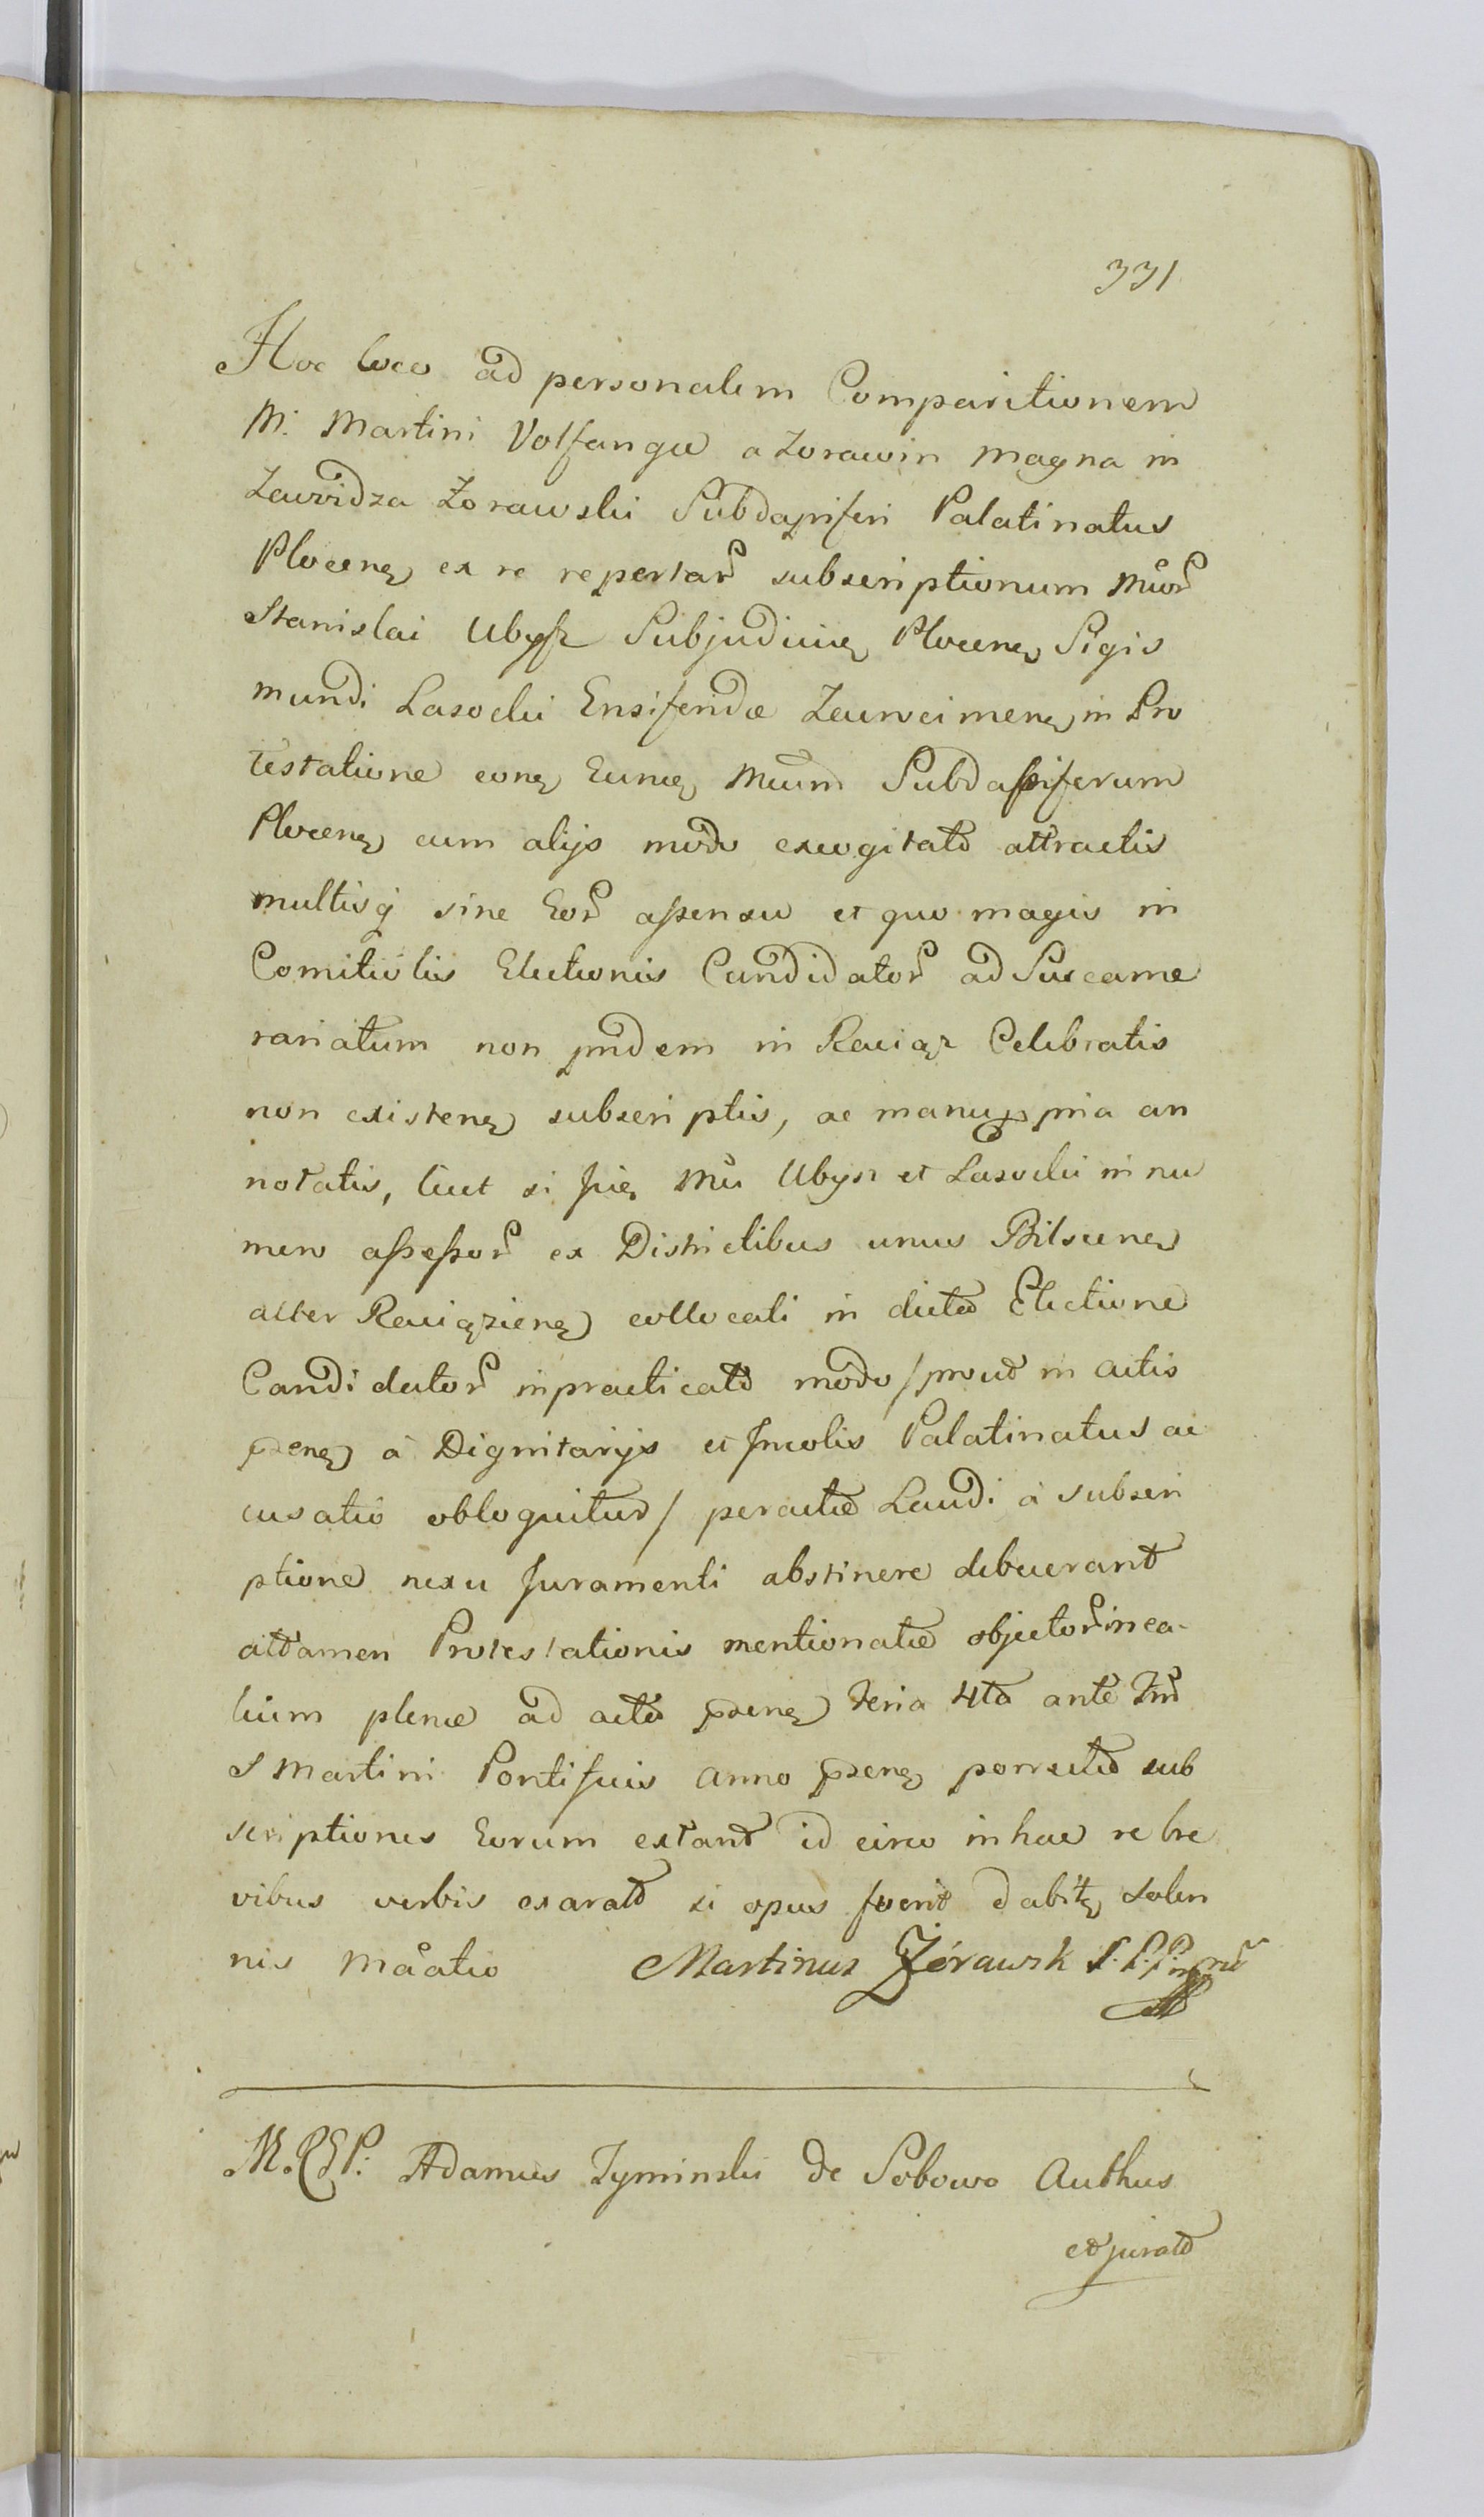 331
Hoc loco ad personalem Comparitionem
M. Martini Volfangi a Zorawin magna in
Zawidza Zorawski Subdapiferi Palatinatus
Plocen ex re repertar subscriptionum Mcor
Stanislai Ubysz Subjudicis Plocen Sigis
mundi Lasocki Ensiferidæ Zawcrimen in Pro
testatione con Eunc Mcum Subdapiferum
Plocen cum alijs modo excogitato attractis
multisq sine Eor assensu et quo magis in
Comitiolis Electionis Candidator ad Succame
rariatum non pridem in Raciąż Celebratis
non existen subscriptis, ac manu ppria an
notatis, licet si sic Mci Ubysz et Lasocki in nu
mero assessor ex Districtibus unus Bilscen
alter Raciążien collocati in dicta Electione
Candidator inpracticato modo / prout in actis
pren à Dignitarijs et Incolis Palatinatus ac
cusatio obloquitur / peractæ Laudi à subscri
ptione nexu Juramenti abstinere debuerant
attamen Protestationis mentionatæ objector inea-
lium plene ad acta pren feria 4ta ante Fm
S Martini Pontificis anno pren porrectæ sub
scriptiones Eorum extant id circo in hac re bre
vibus verbis exarata si opus fuerit dabit solen
nis Maatio Martinus Żórawsk S. P. P. mpria
M. C. E. P. Adamus Tyminski de Sobowo Authus
et jurat